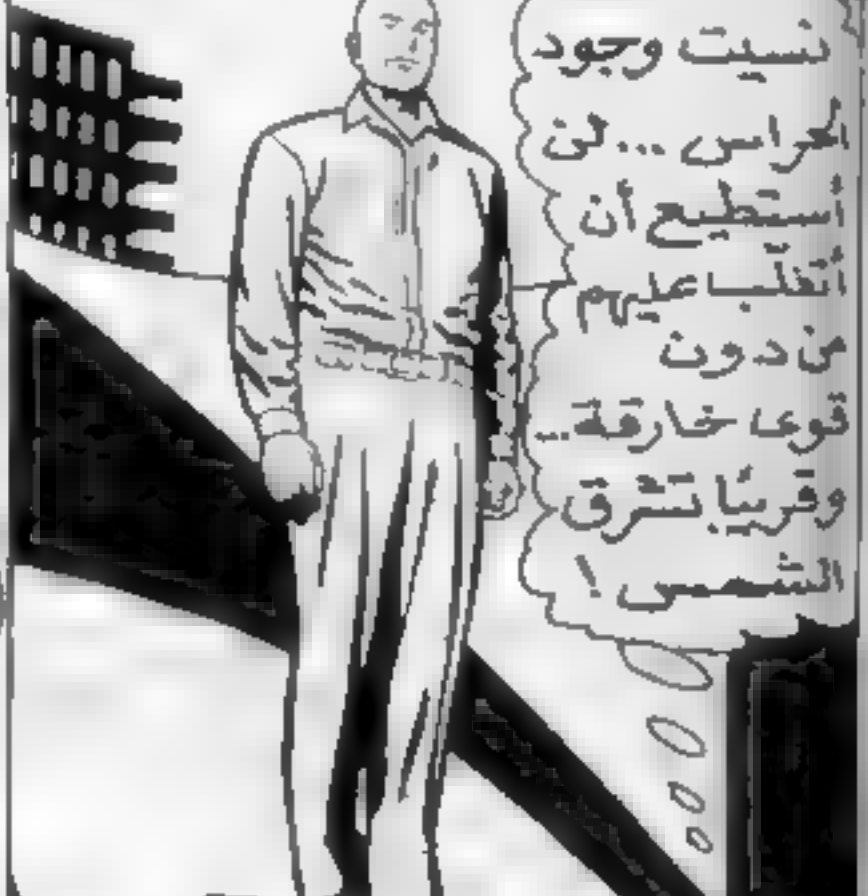 نسيت وجود
الحراس ... لن
أستطيع أن
أتغلّب عليهم
من دون
قوى خارقة...
وقريبًا تشرق
الشمس !